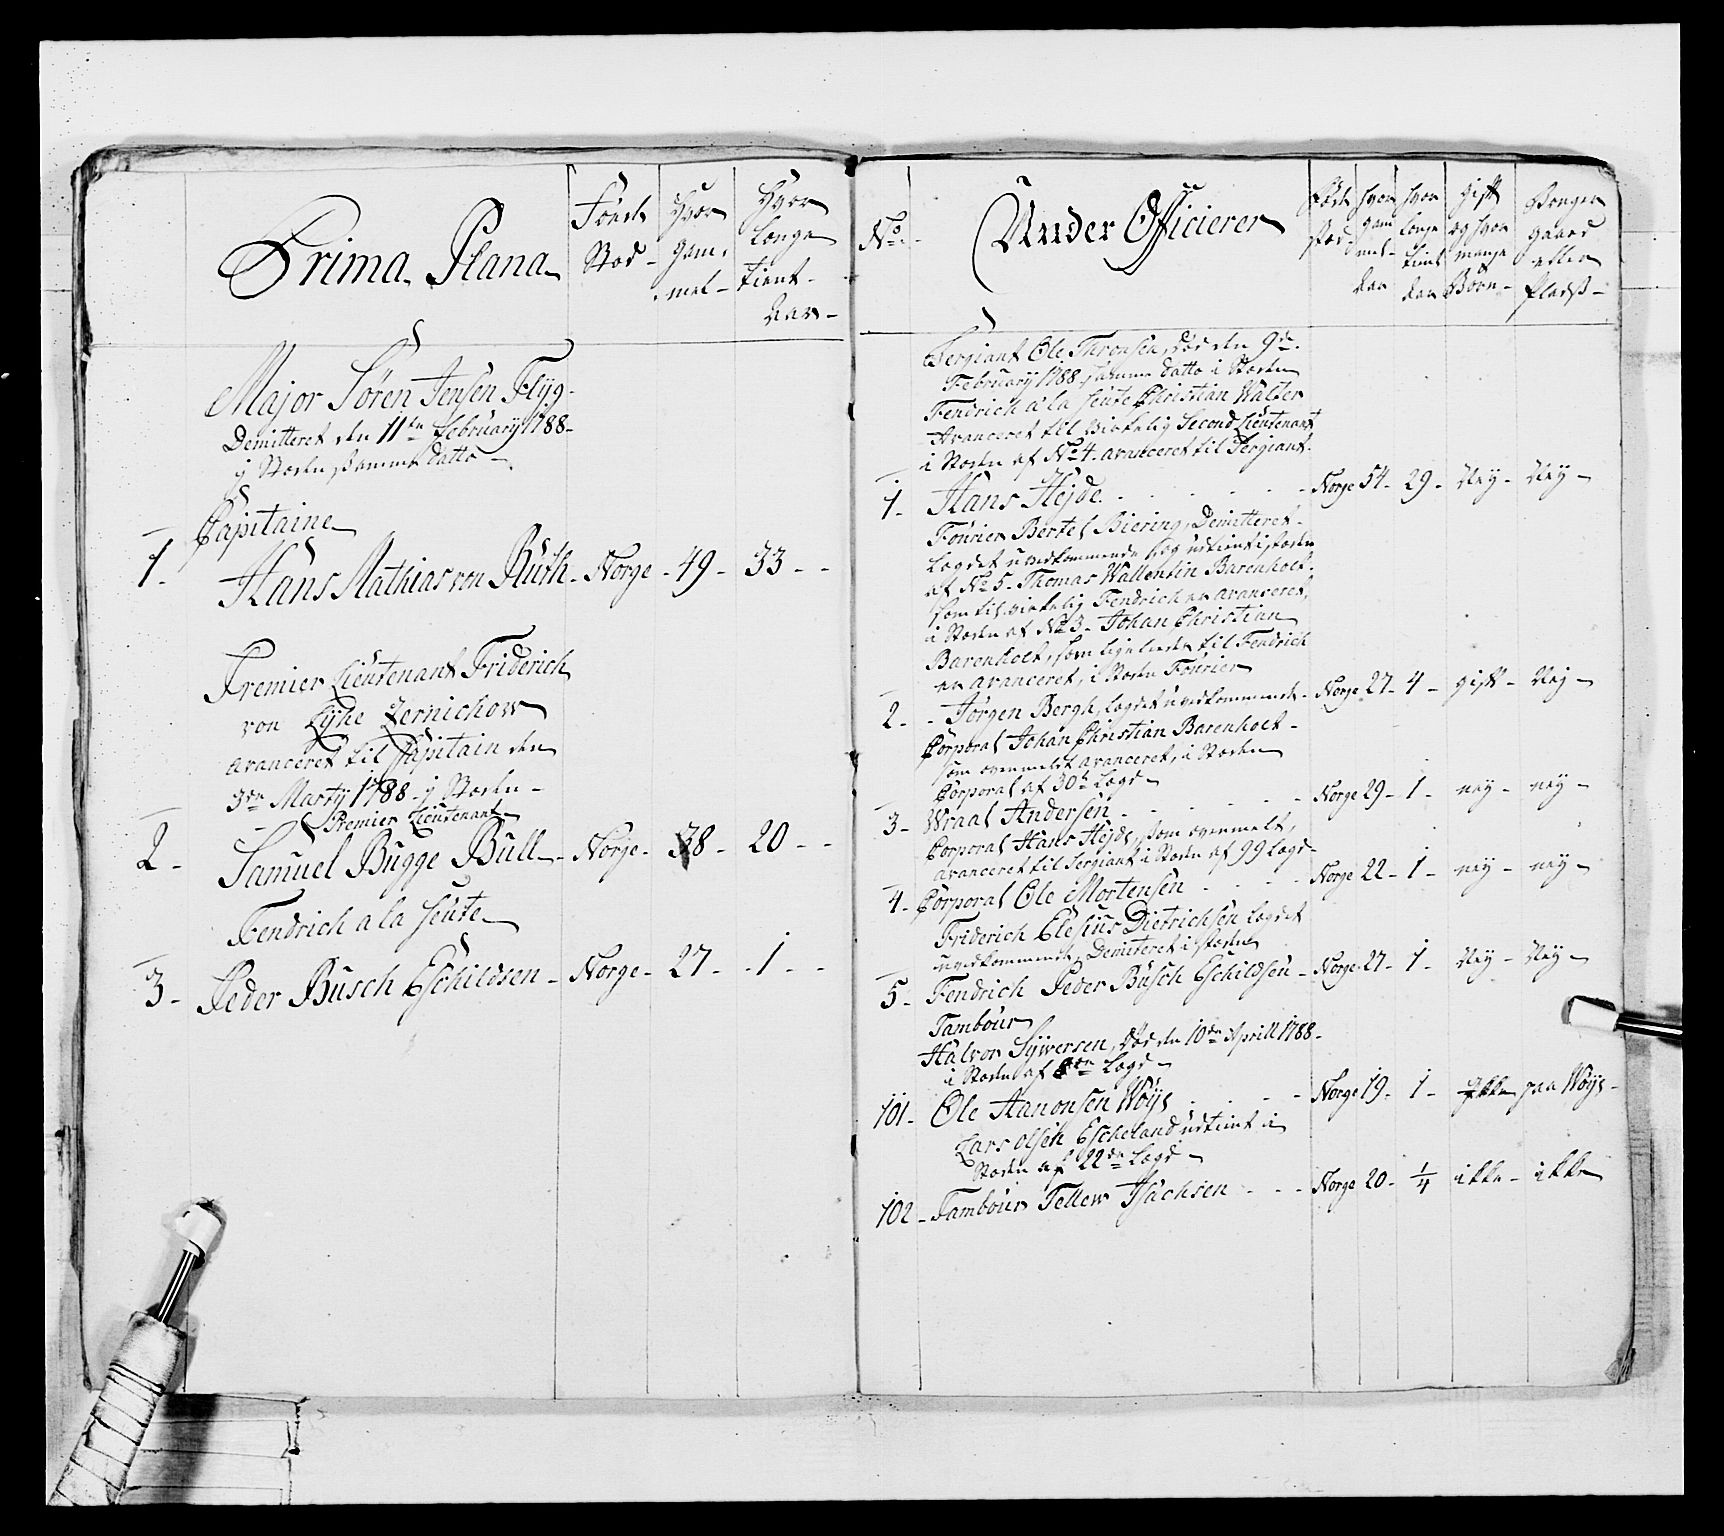 Prima Plana
Föode Stød
Hvor Gam, mel
Hvor Længe Tient Aar
Major Søren Jensen Flyg
Demitteret den 11te February 1788
i Stæden samme datto
Capitaine
1. Hans Mathias von Ruth Norge 49 33
Premier Lieutenant Friderich
von Lyhe Zernichow
avanceret til Capitain den
3de Marty 1788 i Stæden
Premier Lieutenant
2 Samuel Bugge Bull Norge 38 20
Fendrich a la Suite
3 Peder Busch Eschildsen Norge 27 1
No
Under Officierer
Fødestæd
hvor gammel Aar
hvor længe tient Aar
gift og hvor mange Børn
Bonger gaard eller Pladss
Sergiant Ole Thronsen, død den 9de
February 1788 samme datto i Stæden
Fendrich a la Suite Christian Walter
Avanceret til virkelig Second Lieutenant
i Stæden af No 4 avanceret til Sergiant
1. Hans Hejde Norge 54 29 Nej Nej
Fourier Bertel Biering, Demitteret
Lægdet uvedkommende og udtient i stæden
af No 5 Thomas Wallentin Barenholt
som til virkelig Fendrich er avanceret,
i Stæden af No 3 Johan Christian
Barenholt, som ligeledes til Fendrich
er avanceret, i Stæden Fourier
2 Jørgen Bergh, Lægdet uvedkommende Norge 27 4 gift Nej
Corporal Johan Christian Barenholt
som ovenmeldt avanceret, i Stæden
Corporal af 30te Lægd
3 Wraal Andersen Norge 29 1 nej nej
Corporal Hans Hejde, som ovenmelt,
avanceret til Sergiant i Stæden af 99 Lægd
4 Corporal Ole Mortensen Norge 22 1 nej nej
Friderich Elesius Dietrichsen Lægdet
uvedkommende, Demitteret i stæden
5 Fendrich Peder Busch Eschildsen Norge 27 1 Nej Nej
Tambour
Halvor Syversen, død den 10de Aprill 1788
i Stæden af 8de Lægd
101 Ole Aanonsen Wöÿs Norge 19 1 Ikke paa Wöÿs
Lars Olsen Escheland udtient i
Stæden af 22de Lægd
102 Tambour Tellew Isachsen Norge 20 1/4 ikke ikke